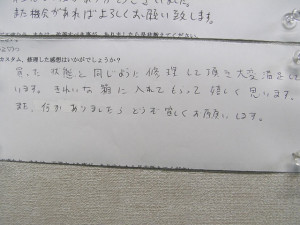 また機会があればよろしくお願い致します。
カスタム、修理した感想はいかがでしょうか?
買った状態と同じように修理して頂き大変満足して
います。きれいな箱に入れてもらって嬉しく思います。
また、何かありましたらどうぞ宜しくお願いします。